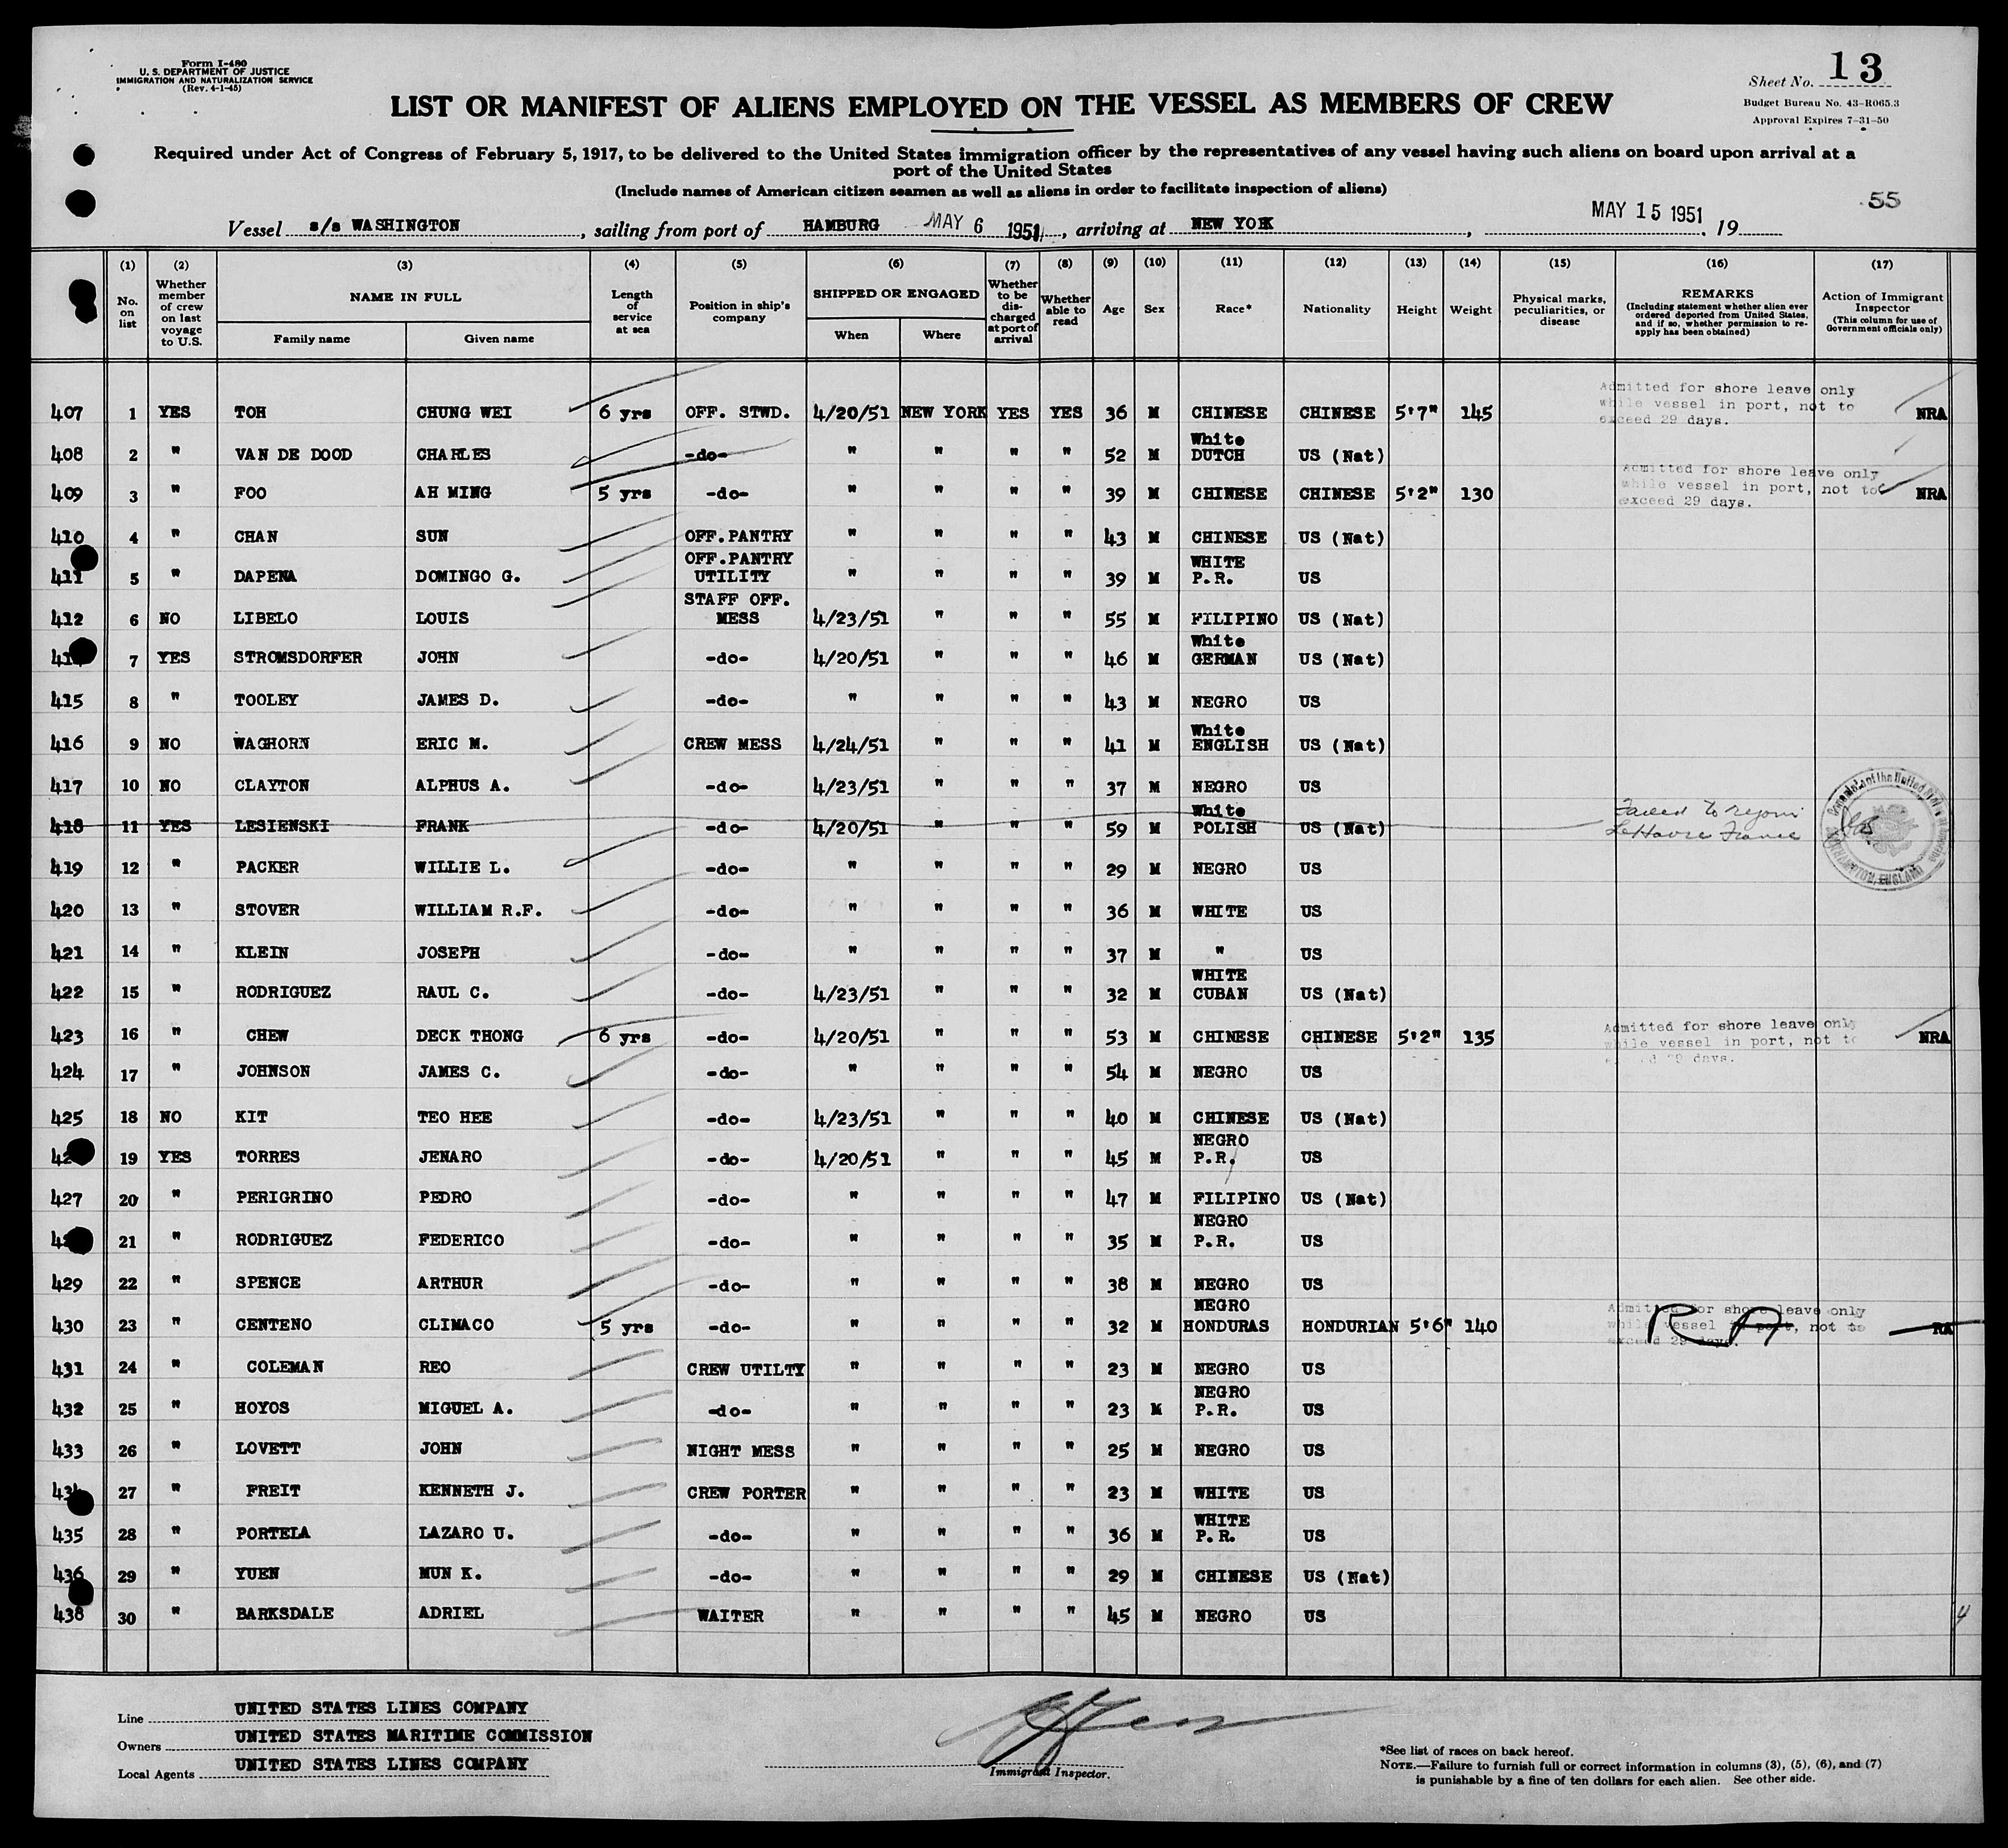 Form I-480
U. S. DEPARTMENT OF JUSTICE
IMMIGRATION AND NATURALIZATION SERVICE
(Rev. 4-1-45)
Sheet No. 13
Budget Bureau No. 43-R065.3
Approval Expires 7-31-50
LIST OR MANIFEST OF ALIENS EMPLOYED ON THE VESSEL AS MEMBERS OF CREW
Required under Act of Congress of February 5, 1917, to be delivered to the United States immigration officer by the representatives of any vessel having such aliens on board upon arrival at a
port of the United States
(Include names of American citizen seamen as well as aliens in order to facilitate inspection of aliens)
55
Vessel s/s WASHINGTON, sailing from port of HAMBURG MAY 6 1951, arriving at NEW YORK, MAY 15 1951, 19
(1) (2) (3) (4) (5) (6) (7) (8) (9) (10) (11) (12) (13) (14) (15) (16) (17)
No. on list
Whether member of crew on last voyage to U.S.
NAME IN FULL
Family name Given name
Length of service at sea
Position in ship's company
SHIPPED OR ENGAGED
When Where
Whether to be discharged at port of arrival
Whether able to read
Age Sex Race* Nationality Height Weight
Physical marks, peculiarities, or disease
REMARKS
(Including statement whether alien ever ordered deported from United States, and if so, whether permission to reapply has been obtained)
Action of Immigrant Inspector
(This column for use of Government officials only)
407 1 YES TOH CHUNG WEI 6 yrs OFF. STWD. 4/20/51 NEW YORK YES YES 36 M CHINESE CHINESE 5'7" 145 Admitted for shore leave only while vessel in port, not to exceed 29 days. NRA
408 2 " VAN DE DOOD CHARLES -do- " " " " 52 M White DUTCH US (Nat)
409 3 " FOO AH MING 5 yrs -do- " " " " 39 M CHINESE CHINESE 5'2" 130 Admitted for shore leave only while vessel in port, not to exceed 29 days. NRA
410 4 " CHAN SUN OFF.PANTRY " " " " 43 M CHINESE US (Nat)
411 5 " DAPENA DOMINGO G. OFF.PANTRY UTILITY " " " " 39 M WHITE P.R. US
412 6 NO LIBELO LOUIS STAFF OFF. MESS 4/23/51 " " " 55 M FILIPINO US (Nat)
7 YES STROMSDORFER JOHN -do- 4/20/51 " " " 46 M White GERMAN US (Nat)
415 8 " TOOLEY JAMES D. -do- " " " " 43 M NEGRO US
416 9 NO WAGHORN ERIC M. CREW MESS 4/24/51 " " " 41 M White ENGLISH US (Nat)
417 10 NO CLAYTON ALPHUS A. -do- 4/23/51 " " " 37 M NEGRO US
418 11 YES LESIENSKI FRANK -do- 4/20/51 " " " 59 M White POLISH US (Nat) Failed to rejoin Le Havre France
419 12 " PACKER WILLIE L. -do- " " " " 29 M NEGRO US
420 13 " STOVER WILLIAM R.F. -do- " " " " 36 M WHITE US
421 14 " KLEIN JOSEPH -do- " " " " 37 M " US
422 15 " RODRIGUEZ RAUL C. -do- 4/23/51 " " " 32 M WHITE CUBAN US (Nat)
423 16 " CHEW DECK THONG 6 yrs -do- 4/20/51 " " " 53 M CHINESE CHINESE 5'2" 135 Admitted for shore leave only while vessel in port, not to days. NRA
424 17 " JOHNSON JAMES C. -do- " " " " 54 M NEGRO US
425 18 NO KIT TEO HEE -do- 4/23/51 " " " 40 M CHINESE US (Nat)
19 YES TORRES JENARO -do- 4/20/51 " " " 45 M NEGRO P.R. US
427 20 " PERIGRINO PEDRO -do- " " " " 47 M FILIPINO US (Nat)
21 " RODRIGUEZ FEDERICO -do- " " " " 35 M NEGRO P.R. US
429 22 " SPENCE ARTHUR -do- " " " " 38 M NEGRO US
430 23 " CENTENO CLIMACO 5 yrs -do- " " " " 32 M NEGRO HONDURAS HONDURIAN 5'6" 140 Admitted for shore leave only while vessel in port, not to exceed 29 days. R A RA
431 24 " COLEMAN REO CREW UTILTY " " " " 23 M NEGRO US
432 25 " HOYOS MIGUEL A. -do- " " " " 23 M NEGRO P.R. US
433 26 " LOVETT JOHN NIGHT MESS " " " " 25 M NEGRO US
27 " FREIT KENNETH J. CREW PORTER " " " " 23 M WHITE US
435 28 " PORTELA LAZARO U. -do- " " " " 36 M WHITE P.R. US
436 29 " YUEN MUN K. -do- " " " " 29 M CHINESE US (Nat)
438 30 " BARKSDALE ADRIEL WAITER " " " " 45 M NEGRO US 4
Line UNITED STATES LINES COMPANY
Owners UNITED STATES MARITIME COMMISSION
Local Agents UNITED STATES LINES COMPANY
Immigrant Inspector.
*See list of races on back hereof.
NOTE.—Failure to furnish full or correct information in columns (3), (5), (6), and (7)
is punishable by a fine of ten dollars for each alien. See other side.